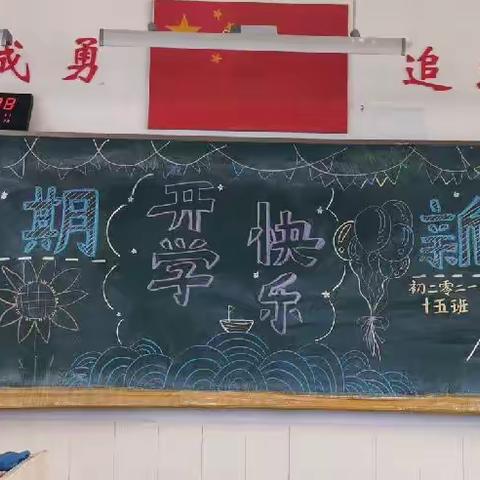 勇
追
期
开学
快乐
新
初二零二一
十五班